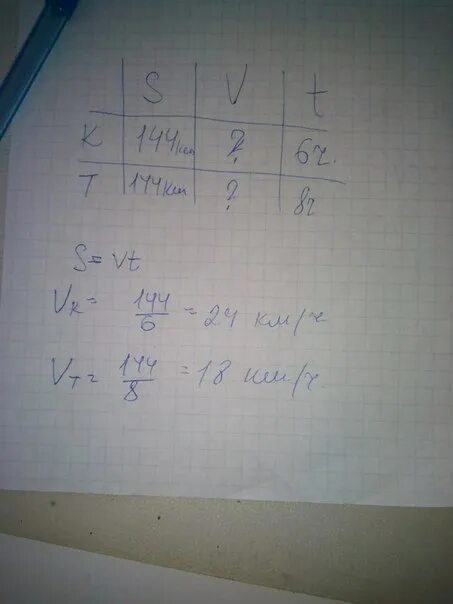 S V t
К 144км ? 6ч.
Т 144км ? 8ч
S = Vt
Vк = 144/6 = 24 км/ч
Vт = 144/8 = 18 км/ч.